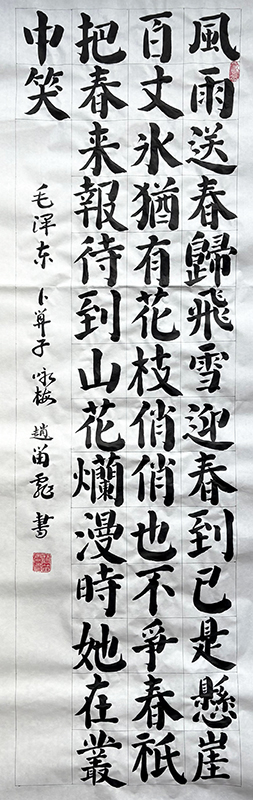 風雨送春歸飛雪迎春到已是懸崖
百丈氷猶有花枝俏俏也不爭春祇
把春来報待到山花爛漫時她在叢
中笑
毛泽东 卜算子 咏梅 趙 書